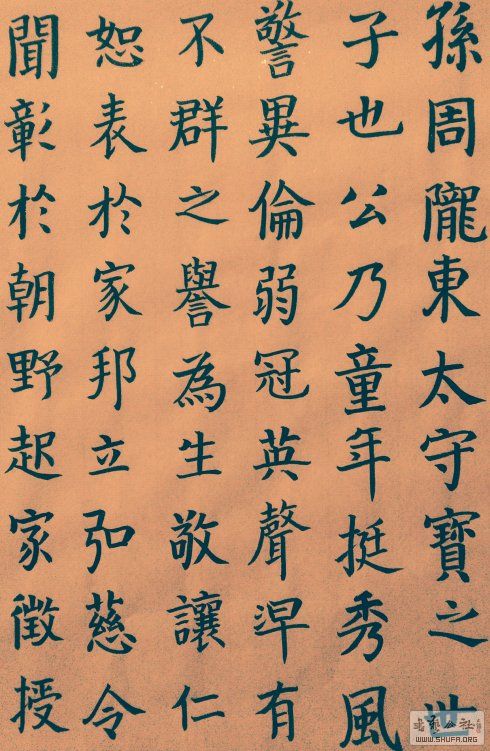 孫周隴東太守寶之世
子也公乃童年挺秀風
警異倫弱冠英聲早有
不群之譽為生敬讓仁
恕表於家邦立弘慈令
聞彰於朝野起家徵授
WWW.SHUFA.ORG